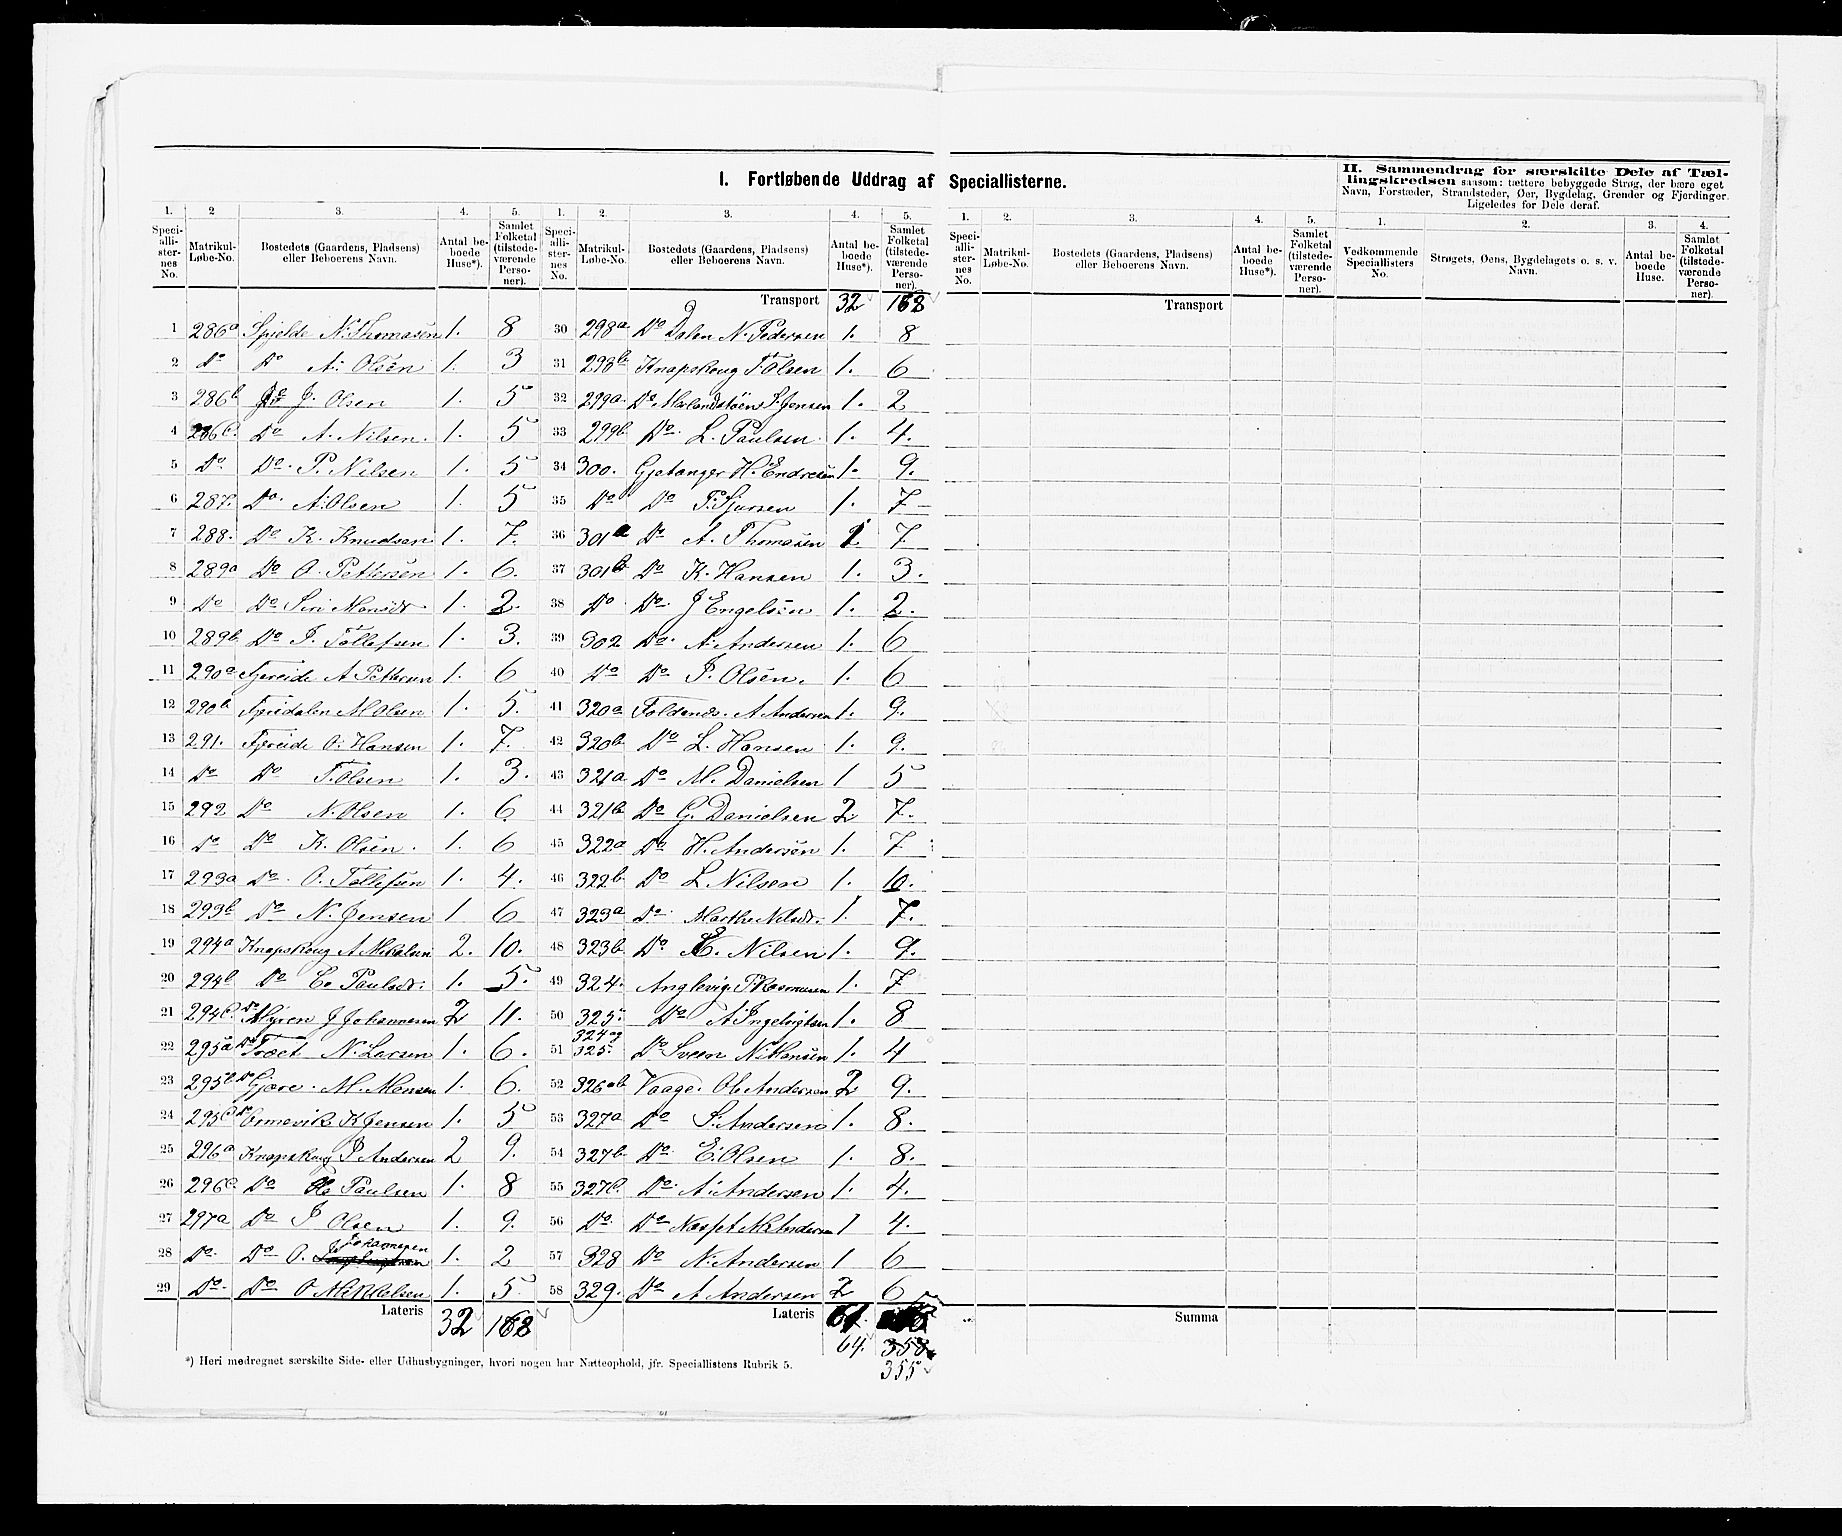 I. Fortløbende Uddrag af Speciallisterne.
II. Sammendrag for særskilte Dele af Tæl-
lingskredsen saasom: tættere bebyggede Strøg, der bære eget
Navn, Forstæder, Strandsteder, Øer, Bygdelag, Grender og Fjerdinger.
Ligeledes for Dele deraf.
1. 2 3. 4. 5. 1. 2. 3. 4. 5. 1. 2. 3. 4. 5. 1. 2. 3. 4.
Speci-alli-ster-nes No. Matrikul-Løbe-No. Bostedets (Gaardens, Pladsens) eller Beboerens Navn. Antal be-boede Huse*). Samlet Folketal (tilstede-værende Perso-ner).
Speci-alli-ster-nes No. Matrikul-Løbe-No. Bostedets (Gaardens, Pladsens) eller Beboerens Navn. Antal be-boede Huse*). Samlet Folketal (tilstede-værende Perso-ner).
Speci-alli-ster-nes No. Matrikul-Løbe-No. Bostedets (Gaardens, Pladsens) eller Beboerens Navn. Antal be-boede Huse*). Samlet Folketal (tilstede-værende Perso-ner).
Vedkommende Speciallisters No. Strøgets, Øens, Bygdelagets o. s. v. Navn. Antal be-boede Huse. Samlet Folketal (tilstede-værende Perso-ner).
1 286a Spjelde N. Thomasen 1. 8
2 Do Do A. Olsen 1. 3
3 286b Do J. Olsen 1. 5
4 286c. Do A. Nilsen. 1. 5
5 Do. Do. P. Nilsen 1. 5
6 287. Do. A. Olsen 1. 5
7 288. Do K. Knudsen 1. 7.
8 289a Do O. Pettersen 1. 6.
9 Do Do Siri Monsdr. 1. 2.
10 289b. Do J. Tollefsen 1. 3.
11 290a Fjereide A. Pettersen 1. 6
12 290b Fjeredalen M Olsen 1. 5.
13 291. Fjereide O. Hansen 1. 7.
14 Do Do T. Olsen 1. 3.
15 292 Do N. Olsen 1. 6
16 Do Do K. Olsen. 1. 6
17 293a Do. O. Tollefsen 1. 4.
18 293b Do N. Jensen 1 6
19 294a Knapskoug A Mikalsen 2. 10.
20 294b Do C. Paulsdr. 1. 5.
21 294c. Do Myren J Johannesen 2 11.
22 295a Do Træet N. Larsen 1. 6.
23 295b Do Gjære. M. Monsen 1. 6.
24 295c Do Ormevik K Jensen 1. 5
25 296a Knapskoug P Andersen 2 9.
26 296c. Do Ole Paulsen 1. 8
27 297a Do J Olsen 1. 9.
28 Do. Do O. Johannesen 1. 2
29 Do. Do O Mikkelsen 1. 5.
Lateris 32 168
Transport 32 168
30 298a Do Dalen N. Pedersen 1. 8
31 298b. Knapskoug T Olsen 1. 6
32 299a. Do Mælandstøen S. Jensen 1. 2
33 299b. Do. L. Paulsen. 1. 4.
34 300. Gjetanger H. Endresen 1. 9.
35 Do Do P. Sjursen 1. 7
36 301a Do A. Thomasen 1 7
37 301b Do K. Hansen 1. 3.
38 Do Do. J Engelsen 1. 2.
39 302 Do. A. Andersen 1. 6
40 Do Do P. Olsen. 1. 6
41 320a Foldenæs. A Andersen 1. 9.
42 320b. Do L. Hansen 1. 9.
43 321a Do M. Danielsen 1 5
44 321b. Do G. Danielsen 2 7.
45 322a Do H. Andersen 1. 7
46 322b. Do L Nilsen 1. 10.
47 323a Do. Marthe Nilsdr. 1. 7.
48 323b. Do E. Nilsen 1. 9.
49 324. Anglevig P Rasmusen 1. 7
50 325. Do A Ingebrigtsen 1. 8
51 324 og 325. Do Sveen N. Hansen 1. 4
52 326ab. Vaage. Ole Andersen 2 9.
53 327a Do S. Andersen 1. 8.
54 327b. Do. E. Olsen 1. 8.
55 327c. Do. A. Andersen 1. 4.
56 Do. Do Næset M. Andersen 1 4.
57 328 Do N. Andersen 1 6
58 329. Do A Andersen 2 6
Lateris
64. 358
355
Transport
Summa
*) Heri medregnet særskilte Side- eller Udhusbygninger, hvori nogen har Natteophold, jfr. Speciallistens Rubrik 5.